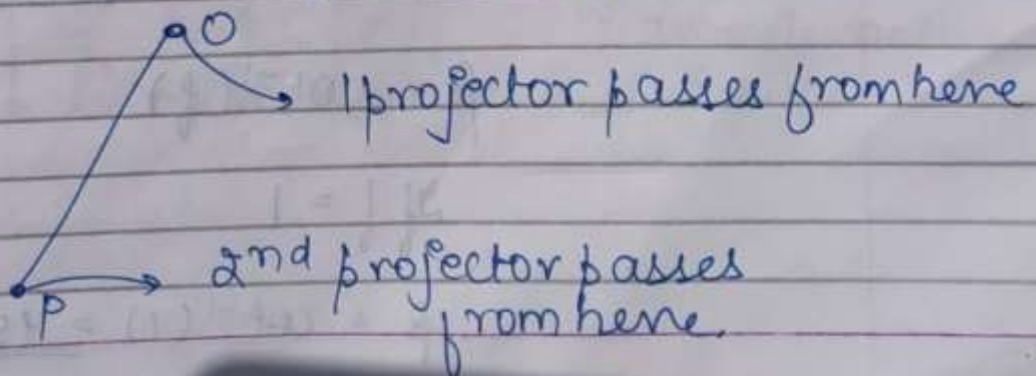 O
1 projector passes from here
2nd projector passes
P
from here.